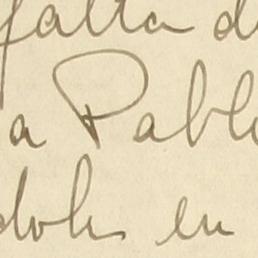 falta d
a Pabl
dole en